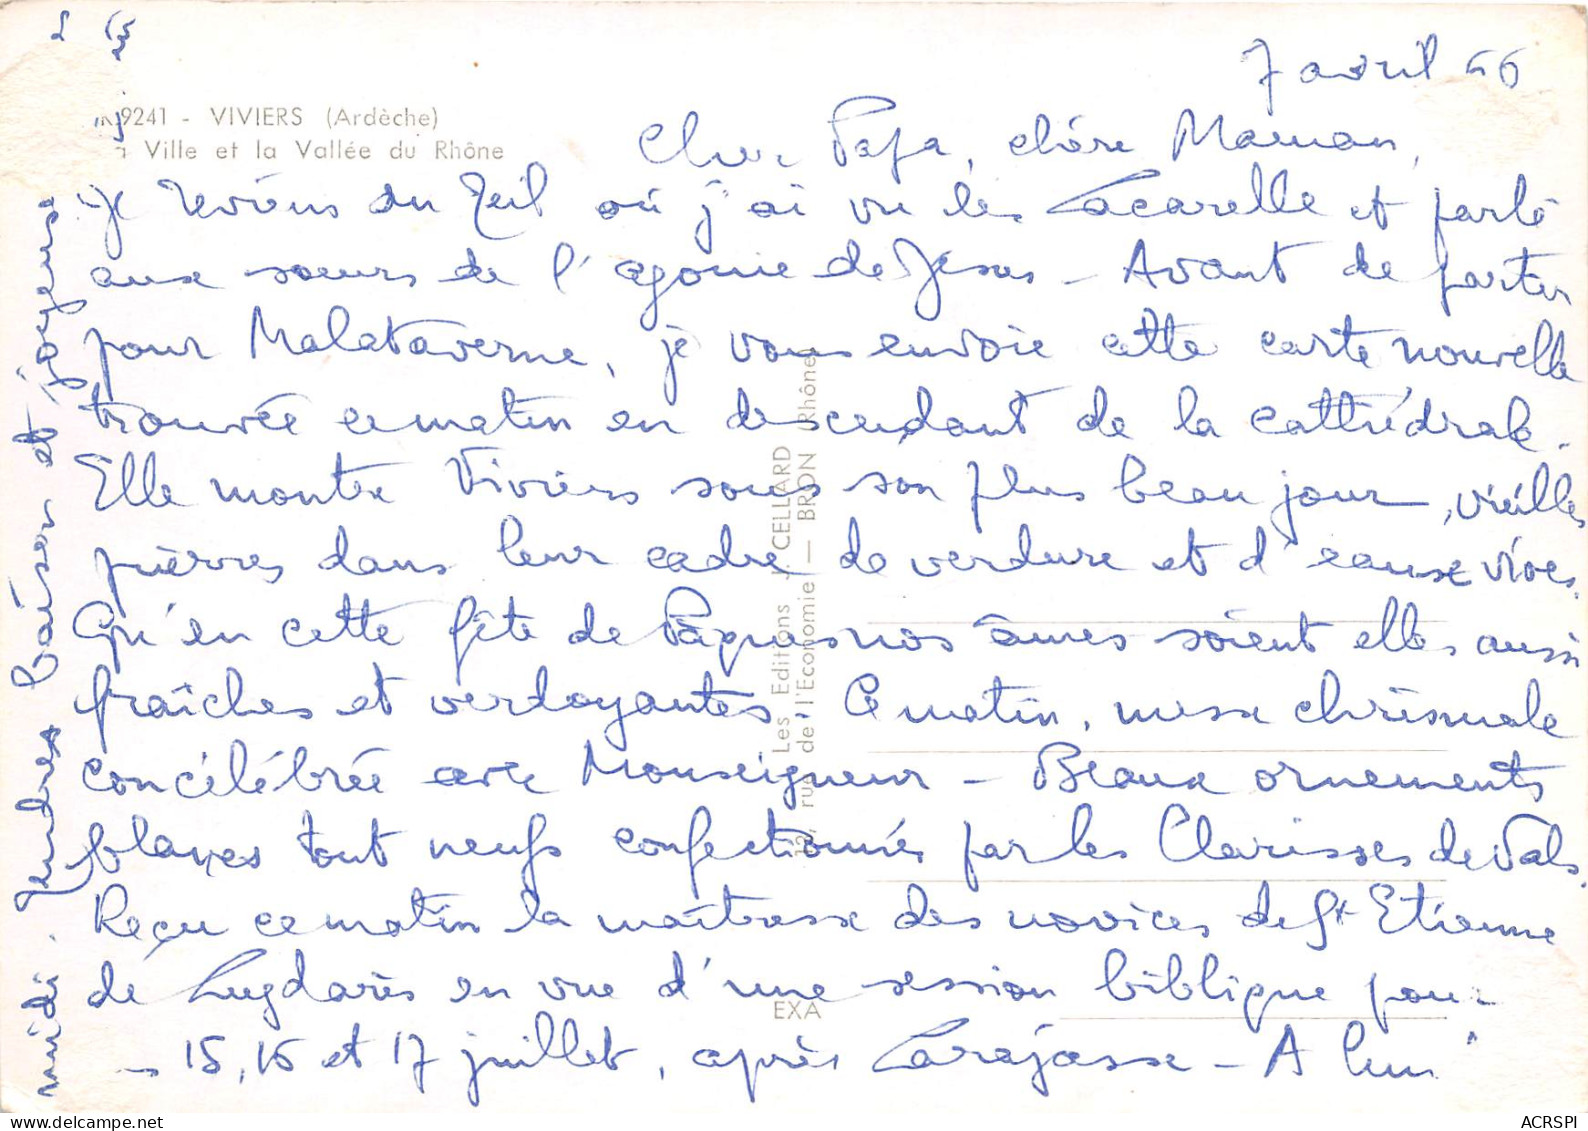 7 avril 66
9241 - VIVIERS (Ardèche)
Ville et la Vallée du Rhône
Cher Papa, chère Maman,
je reviens du Teil où j'ai vu les Lacarelle et parlé
aux soeurs de l'agonie de Jésus - Avant de partir
pour Malataverne, je vous envoie cette carte nouvelle
trouvée ce matin en descendant de la cathédrale.
Elle montre Viviers sous son plus beau jour, vieilles
pierres dans leur cadre de verdure et d'eaux vives.
Qu'en cette fête de Pâques nos âmes soient elles aussi
fraîches et verdoyantes. Ce matin, messe chrismale
concélébrée avec Monseigneur - Beaux ornements
blancs tout neufs confectionnés par les Clarisses de Vals.
Reçu ce matin la maîtresse des novices de St Etienne
de Lugdarès en vue d'une session biblique pour
15, 16 et 17 juillet, après Larajasse - A lun
midi. Tendres baisers et joyeuse
Les Editions J. CELLARD
12, rue de l'Economie - BRON (Rhône)
EXA
ACRSPI